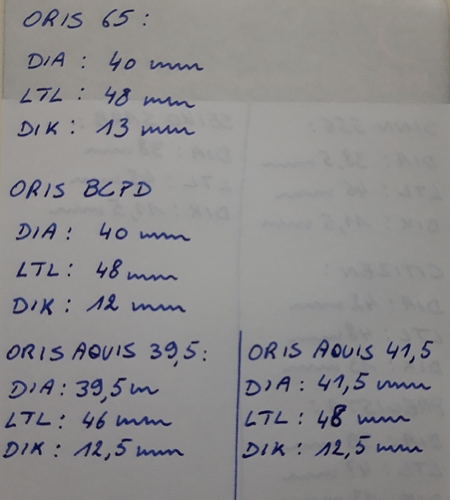 ORIS 65:
DIA: 40 mm
LTL: 48 mm
DIK: 13 mm
ORIS BCPD
DIA: 40 mm
LTL: 48 mm
DIK: 12 mm
ORIS AQUIS 39,5:
DIA: 39,5 m
LTL: 46 mm
DIK: 12,5 mm
ORIS AQUIS 41,5
DIA: 41,5 mm
LTL: 48 mm
DIK: 12,5 mm